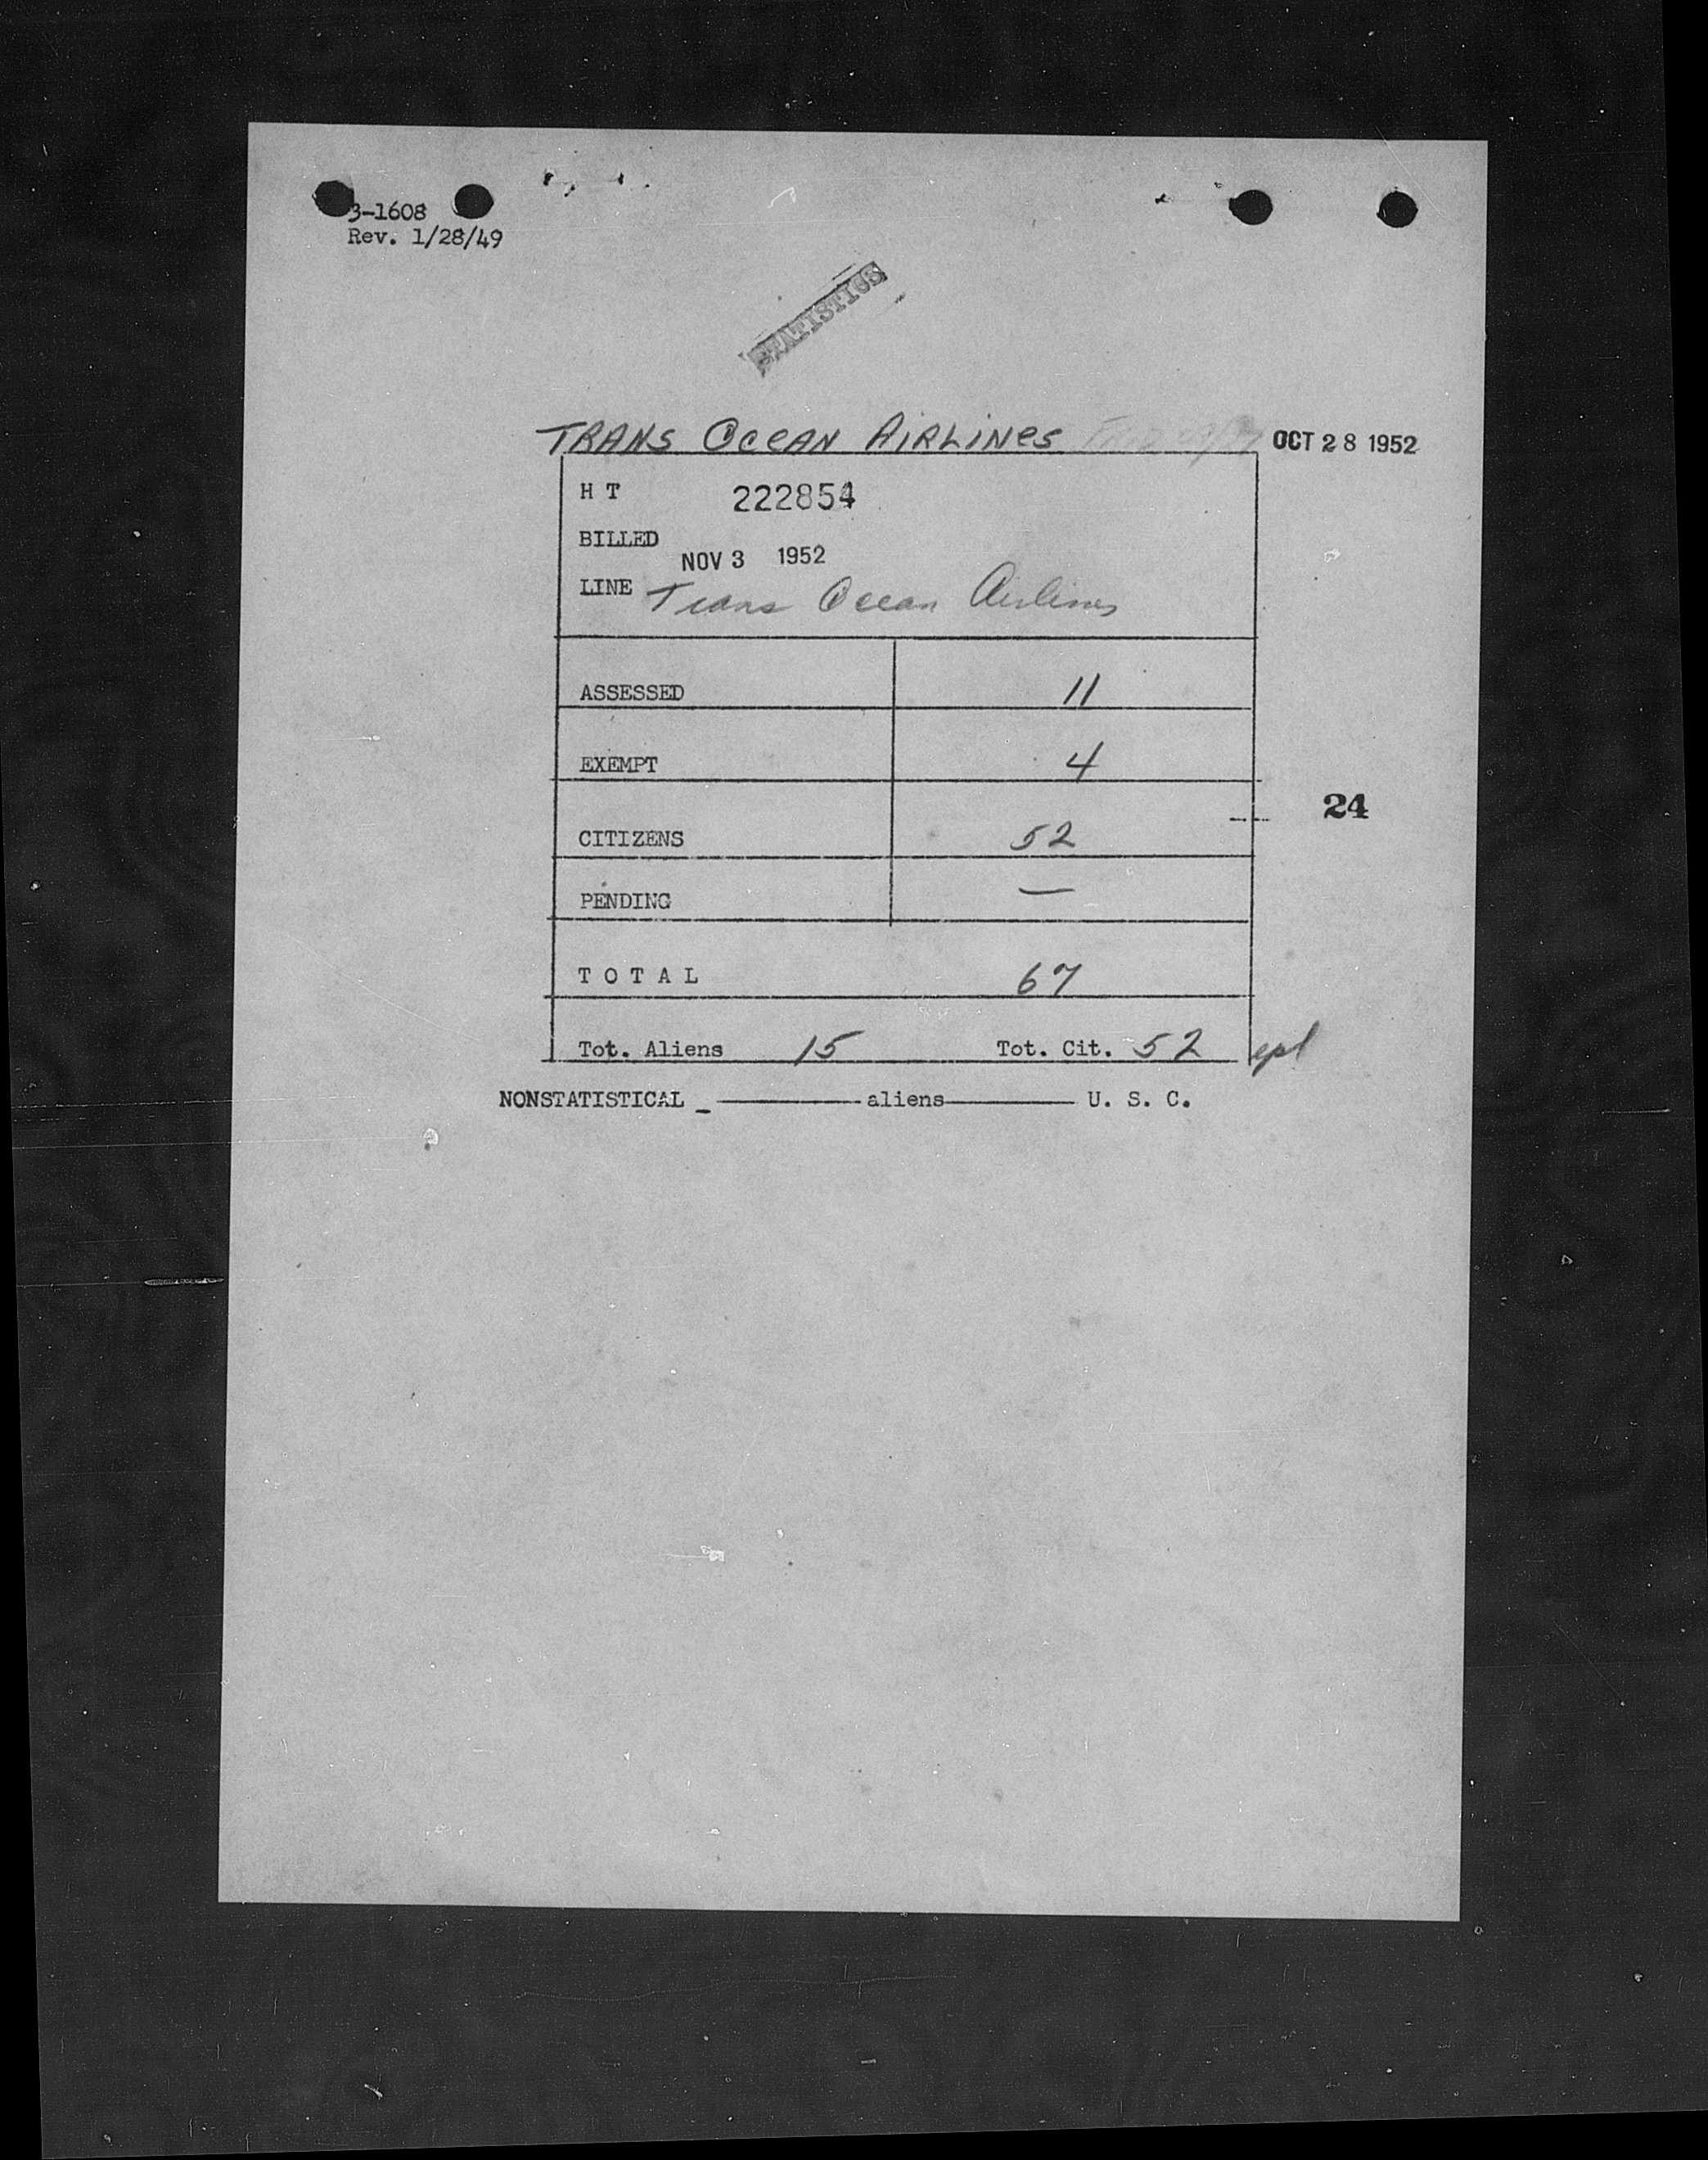 3-1608
Rev. 1/28/49
STATISTICS
TRANS OCEAN AIRLINES OCT 28 1952
H T 222854
BILLED
NOV 3 1952
LINE Trans Ocean Airlines
ASSESSED 11
EXEMPT 4
24
CITIZENS 52
PENDING —
T O T A L 67
Tot. Aliens 15 Tot. Cit. 52
NONSTATISTICAL _ ———— aliens ———— U. S. C.